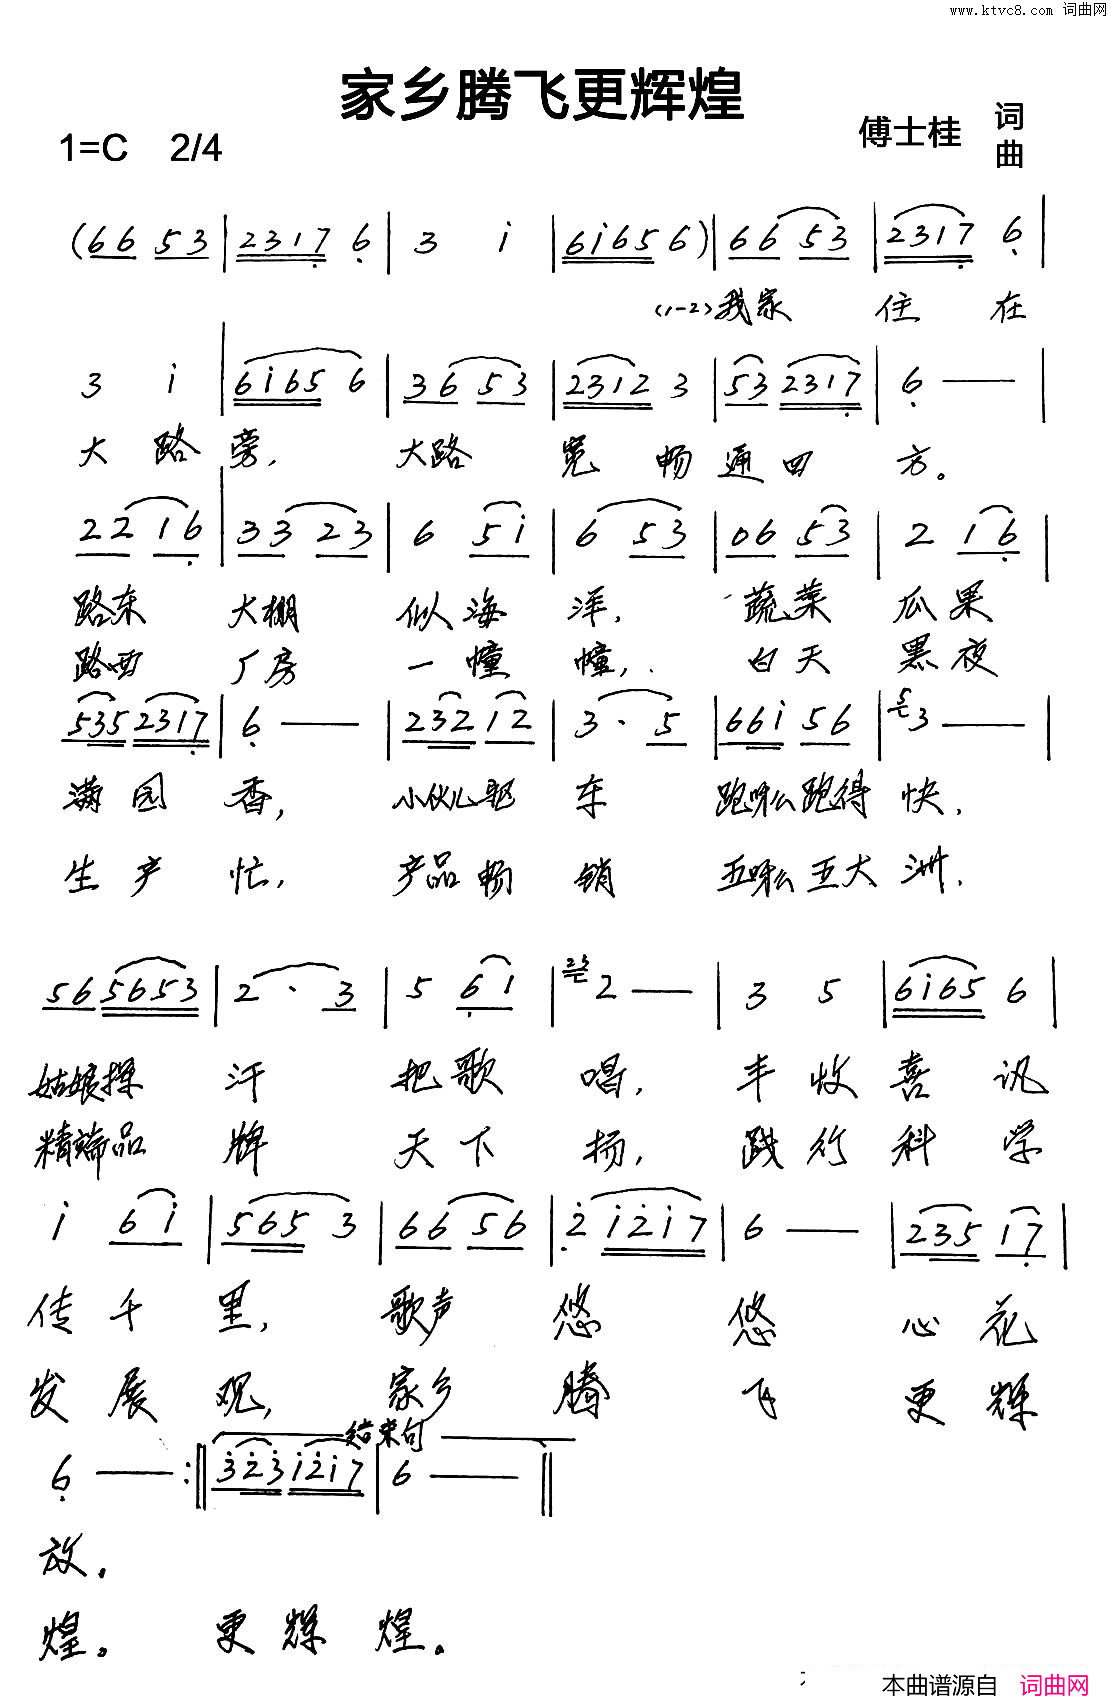 www.ktvc8.com 词曲网
家乡腾飞更辉煌
1=C 2/4 傅士桂 词曲
(66 53 | 2317 6 | 3 i | 6i65 6) | 66 53 | 2317 6 |
(1-2)我家 住 在
3 i | 6i65 6 | 36 53 | 2312 3 | 53 2317 | 6 — |
大 路 旁, 大路 宽 畅 通 四 方。
22 16 | 33 23 | 6 5i | 6 53 | 06 53 | 2 16 |
路东 大棚 似 海 洋, 蔬菜 瓜果
路西 厂房 一 幢 幢, 白天 黑夜
535 2317 | 6 — | 232 12 | 3 · 5 | 66i 56 | 5 3 — |
满 园 香, 小伙儿驱 车 跑呀么跑得 快,
生 产 忙, 产品畅 销 五呀么五大 洲,
56 5653 | 2 · 3 | 5 61 | 23 2 — | 3 5 | 6i65 6 |
姑娘擦 汗 把歌 唱, 丰 收 喜 讯
精端品 牌 天下 扬, 践 行 科 学
i 6i | 565 3 | 66 56 | 2 i2i7 | 6 — | 235 17 |
传 千 里, 歌声 悠 悠 心 花
发 展 观, 家乡 腾 飞 更 辉
结束句
6 — :‖ 323 i2i7 | 6 — ‖
放。
煌。 更 辉 煌。
本曲谱源自 词曲网